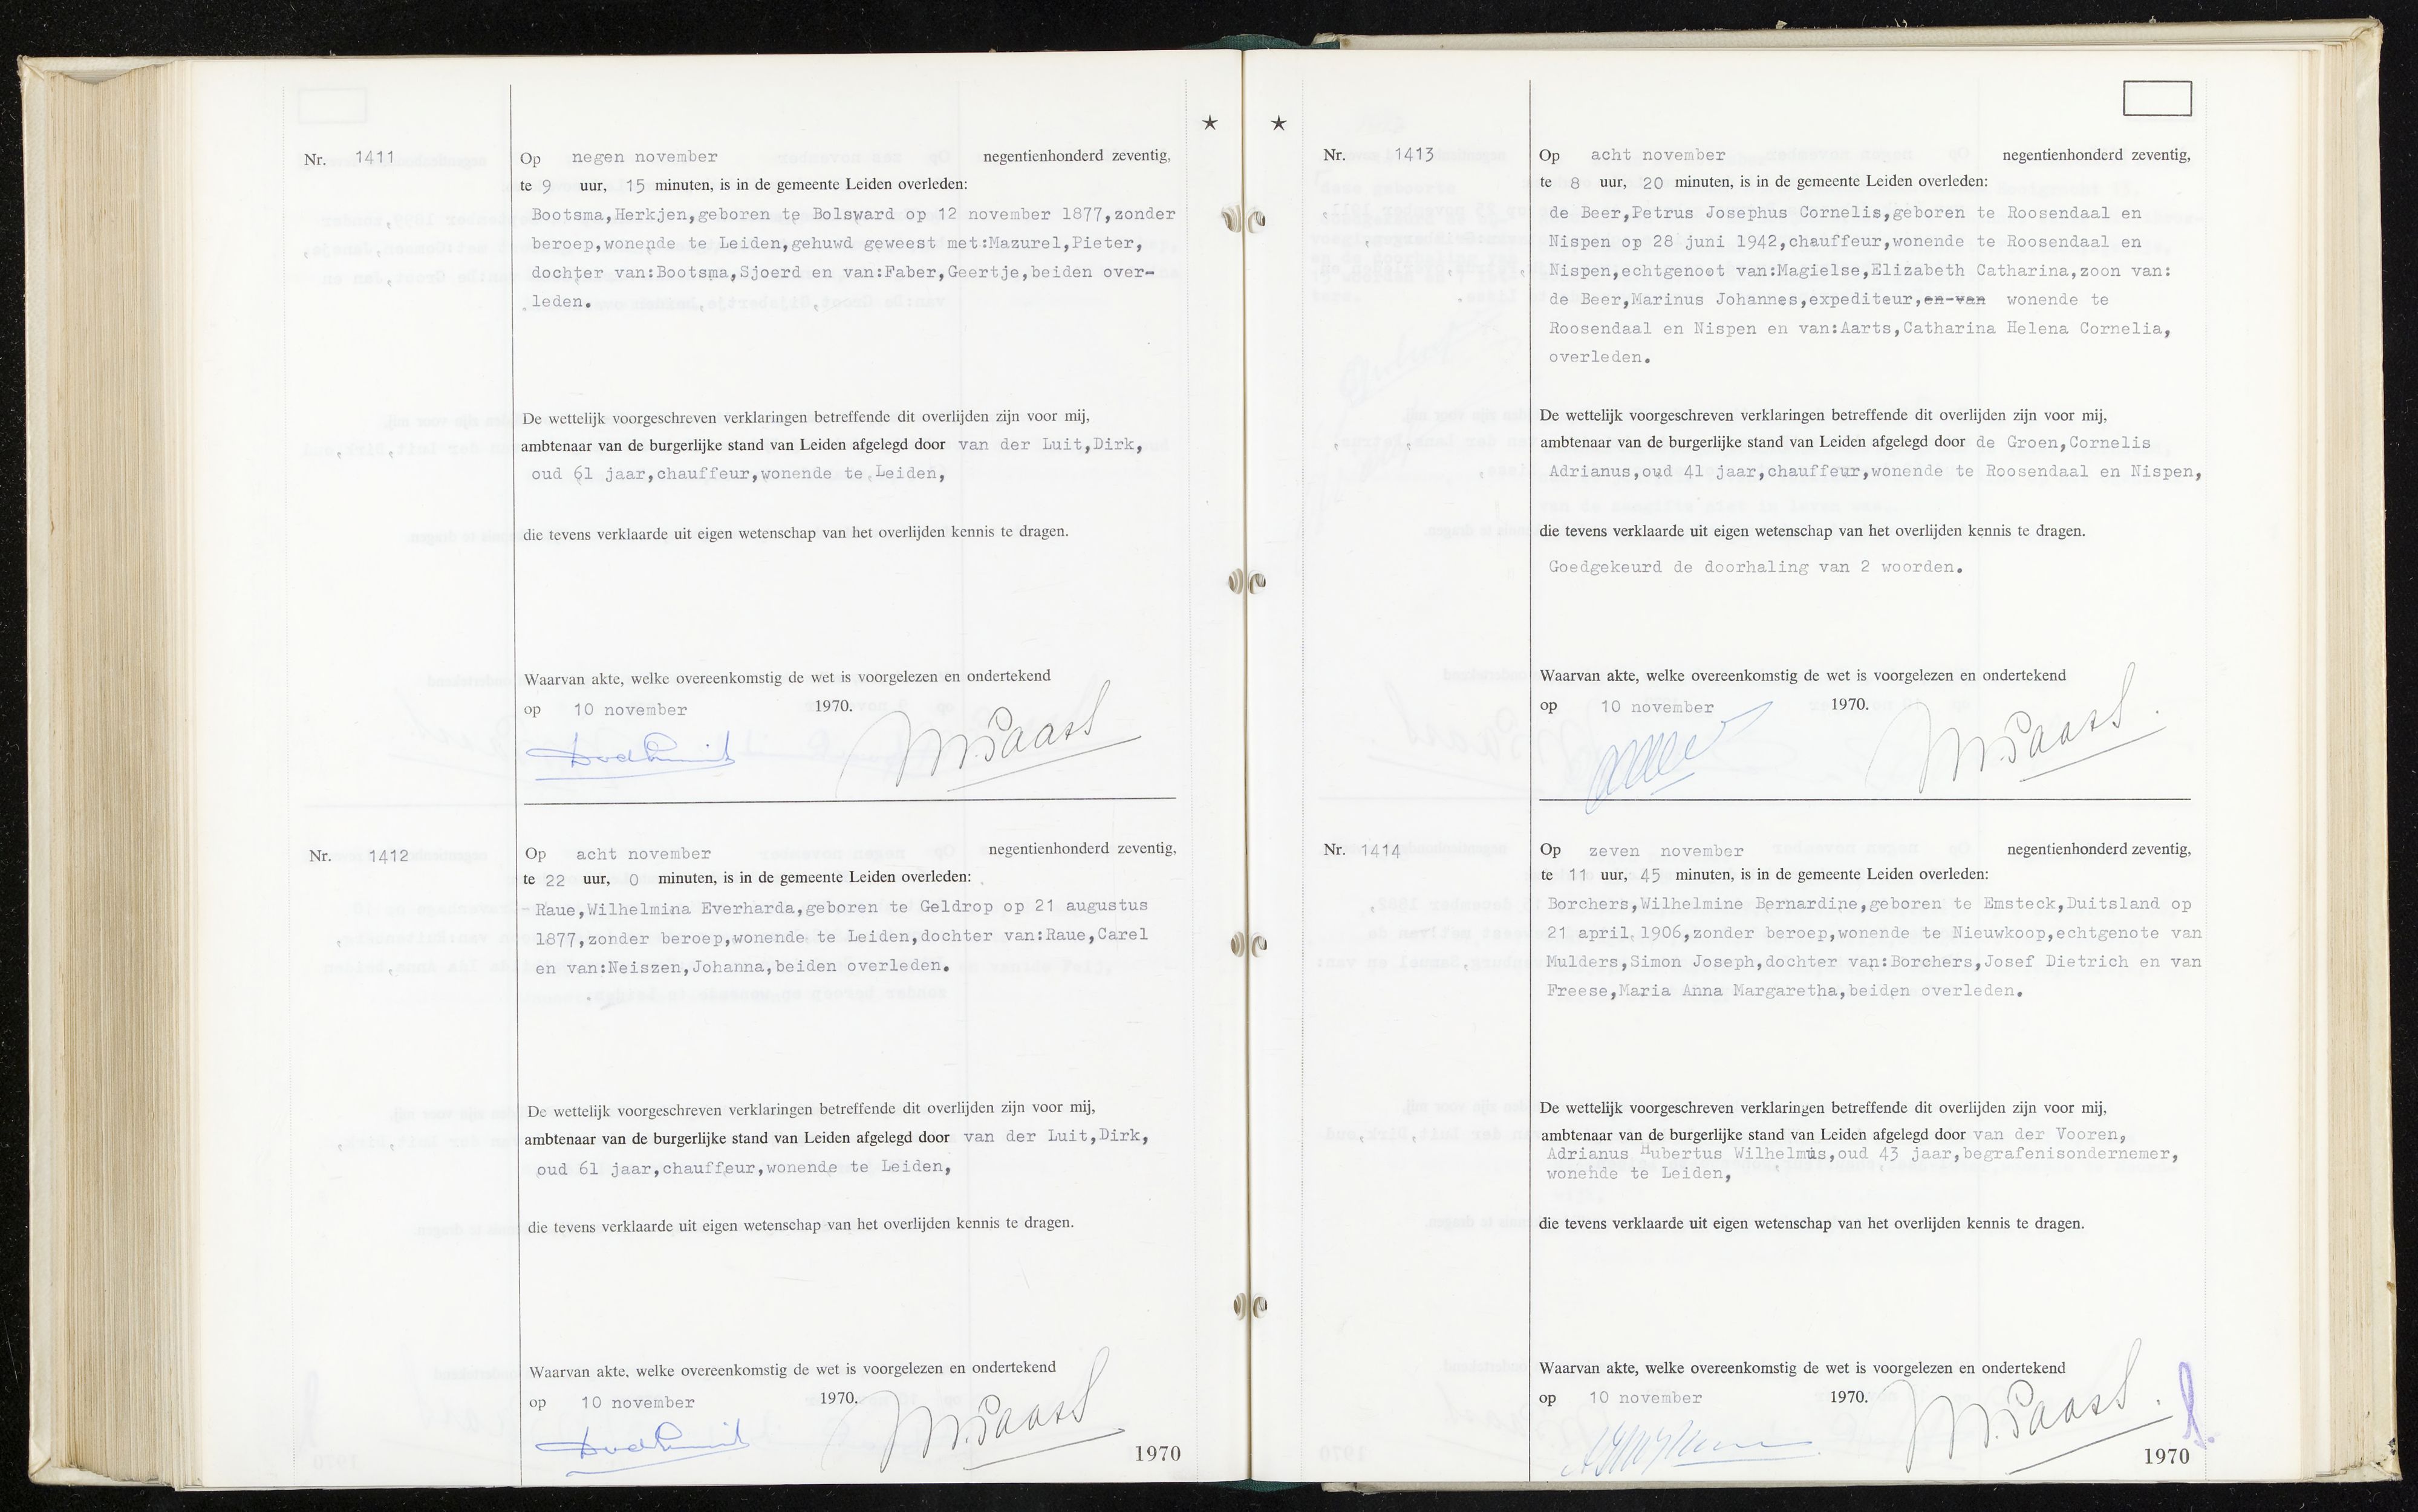 Nr. 1411
Op negen november negentienhonderd zeventig,
te 9 uur, 15 minuten, is in de gemeente Leiden overleden:
Bootsma,Herkjen,geboren te Bolsward op 12 november 1877,zonder
beroep,wonende te Leiden,gehuwd geweest met:Mazurel,Pieter,
dochter van:Bootsma,Sjoerd en van:Faber,Geertje,beiden over-
leden.
De wettelijk voorgeschreven verklaringen betreffende dit overlijden zijn voor mij,
ambtenaar van de burgerlijke stand van Leiden afgelegd door van der Luit,Dirk,
oud 61 jaar,chauffeur,wonende te Leiden,
die tevens verklaarde uit eigen wetenschap van het overlijden kennis te dragen.
Waarvan akte, welke overeenkomstig de wet is voorgelezen en ondertekend
op 10 november 1970.
Nr. 1412
Op acht november negentienhonderd zeventig,
te 22 uur, 0 minuten, is in de gemeente Leiden overleden:
Raue,Wilhelmina Everharda,geboren te Geldrop op 21 augustus
1877,zonder beroep,wonende te Leiden,dochter van:Raue,Carel
en van:Neiszen,Johanna,beiden overleden.
De wettelijk voorgeschreven verklaringen betreffende dit overlijden zijn voor mij,
ambtenaar van de burgerlijke stand van Leiden afgelegd door van der Luit,Dirk,
oud 61 jaar,chauffeur,wonende te Leiden,
die tevens verklaarde uit eigen wetenschap van het overlijden kennis te dragen.
Waarvan akte, welke overeenkomstig de wet is voorgelezen en ondertekend
op 10 november 1970.
1970
Nr. 1413
Op acht november negentienhonderd zeventig,
te 8 uur, 20 minuten, is in de gemeente Leiden overleden:
de Beer,Petrus Josephus Cornelis,geboren te Roosendaal en
Nispen op 28 juni 1942,chauffeur,wonende te Roosendaal en
Nispen,echtgenoot van:Magielse,Elizabeth Catharina,zoon van:
de Beer,Marinus Johannes,expediteur,en van wonende te
Roosendaal en Nispen en van:Aarts,Catharina Helena Cornelia,
overleden.
De wettelijk voorgeschreven verklaringen betreffende dit overlijden zijn voor mij,
ambtenaar van de burgerlijke stand van Leiden afgelegd door de Groen,Cornelis
Adrianus,oud 41 jaar,chauffeur,wonende te Roosendaal en Nispen,
die tevens verklaarde uit eigen wetenschap van het overlijden kennis te dragen.
Goedgekeurd de doorhaling van 2 woorden.
Waarvan akte, welke overeenkomstig de wet is voorgelezen en ondertekend
op 10 november 1970.
Nr. 1414
Op zeven november negentienhonderd zeventig,
te 11 uur, 45 minuten, is in de gemeente Leiden overleden:
Borchers,Wilhelmine Bernardine,geboren te Emsteck,Duitsland op
21 april 1906,zonder beroep,wonende te Nieuwkoop,echtgenote van
Mulders,Simon Joseph,dochter van:Borchers,Josef Dietrich en van
Freese,Maria Anna Margaretha,beiden overleden.
De wettelijk voorgeschreven verklaringen betreffende dit overlijden zijn voor mij,
ambtenaar van de burgerlijke stand van Leiden afgelegd door van der Vooren,
Adrianus Hubertus Wilhelmus,oud 43 jaar,begrafenisondernemer,
wonende te Leiden,
die tevens verklaarde uit eigen wetenschap van het overlijden kennis te dragen.
Waarvan akte, welke overeenkomstig de wet is voorgelezen en ondertekend
op 10 november 1970.
1970